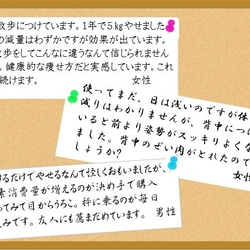 散歩につけています。1年で5㎏やせました
の減量はわずかですが効果が出ています。
歩をしてこんなに違うなんて信じられません
。健康的な痩せ方だと実感しています。これ
続けます。 女性
使ってまだ、日は浅いのですが体
減りはわかりませんが、背中につけ
いると前より姿勢がスッキリよくな
ました。背中のぜい肉がとれたので
しょうか？
女性
けるだけでやせるなんて怪しくおもいましたが、
素消費量が増えるのが決め手で購入
ってみて目からうろこ。秤に乗るのが毎日
みです。友人にも薦まだめています。 男性